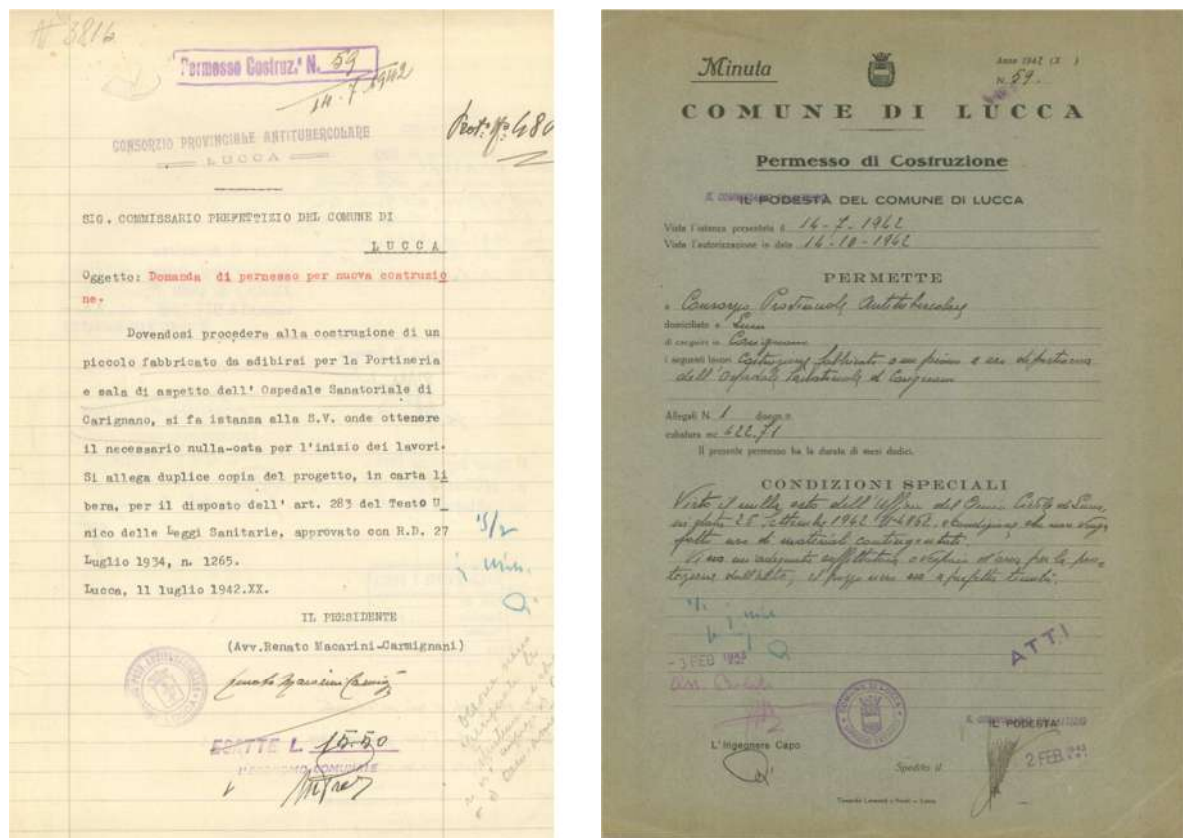 N 3816
Permesso Costruz.e N. 59
14-7-1942
CONSORZIO PROVINCIALE ANTITUBERCOLARE
LUCCA
Prot.
SIG. COMMISSARIO PREFETTIZIO DEL COMUNE DI
LUCCA
Oggetto: Domanda di permesso per nuova costruzio
ne.
Dovendosi procedere alla costruzione di un
piccolo fabbricato da adibirsi per la Portineria
e sala di aspetto dell' Ospedale Sanatoriale di
Carignano, si fa istanza alla S.V. onde ottenere
il necessario nulla-osta per l'inizio dei lavori.
Si allega duplice copia del progetto, in carta li
bera, per il disposto dell' art. 283 del Testo U
nico delle Leggi Sanitarie, approvato con R.D. 27
Luglio 1934, n. 1265.
Lucca, 11 luglio 1942.XX.
IL PRESIDENTE
(Avv.Renato Macarini-Carmignani)
L. 15.50
Minuta
Anno 1942 (X )
N. 59.
COMUNE DI LUCCA
Permesso di Costruzione
IL PODESTÀ DEL COMUNE DI LUCCA
Vista l'istanza presentata il 14-7-1942
Vista l'autorizzazione in data 14-10-1942
PERMETTE
a Consorzio Provinciale Antitubercolare
domiciliato a Lucca
di eseguire in Carignano
i seguenti lavori Costruzione fabbricato a un piano a uso di portineria
dell'Ospedale Sanatoriale di Carignano
Allegati N. 1 disegno
cubatura mc 422.71
Il presente permesso ha la durata di mesi dodici.
CONDIZIONI SPECIALI
Visto il nulla osta dell'Ufficio del Genio Civile di Lucca,
in data 25 Settembre 1942 N 4862, a condizione che non venga
fatto uso di materiali contingentati.
-3 FEB
ATTI
COMUNE DI LUCCA
L'Ingegnere Capo
IL PODESTÀ
2 FEB.
Spedito il